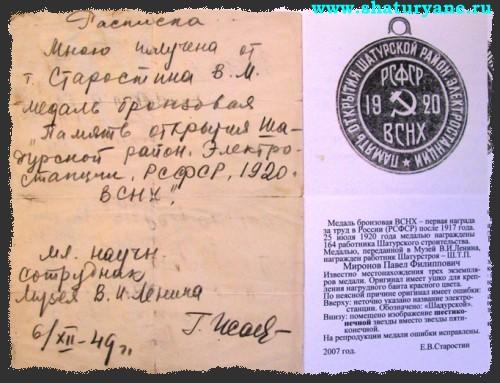 www.shaturyane.ru
Расписка
Мною получена от
т. Старостина В.М.
медаль бронзовая
"Память открытия Ша-
турской район. Электро-
станции, РСФСР, 1920.
ВСНХ".
мл. научн.
сотрудник
Музея В.И. Ленина
6/XII-49 г.
ПАМЯТЬ ОТКРЫТИЯ ШАТУРСКОЙ РАЙОН. ЭЛЕКТРОСТАНЦИИ
РСФСР
1920
ВСНХ
Медаль бронзовая ВСНХ – первая награда
за труд в России (РСФСР) после 1917 года.
25 июля 1920 года медалью награждены
164 работника Шатурского строительства.
Медалью, переданной в Музей В.И.Ленина,
награжден работник Шатурстроя – Ш.Т.П.
Миронов Павел Филиппович
Известно местонахождения трех экземпля-
ров медали. Оригинал имеет ушко для креп-
ления нагрудного банта красного цвета.
По неясной причине оригинал имеет ошибки:
Вверху: неточно указано название электро-
станции. Обозначено: «Шадурской».
Внизу: помещено изображение шестико-
нечной звезды вместо звезды пяти-
конечной.
На репродукции медали ошибки исправлены.
Е.В.Старостин
2007 год.